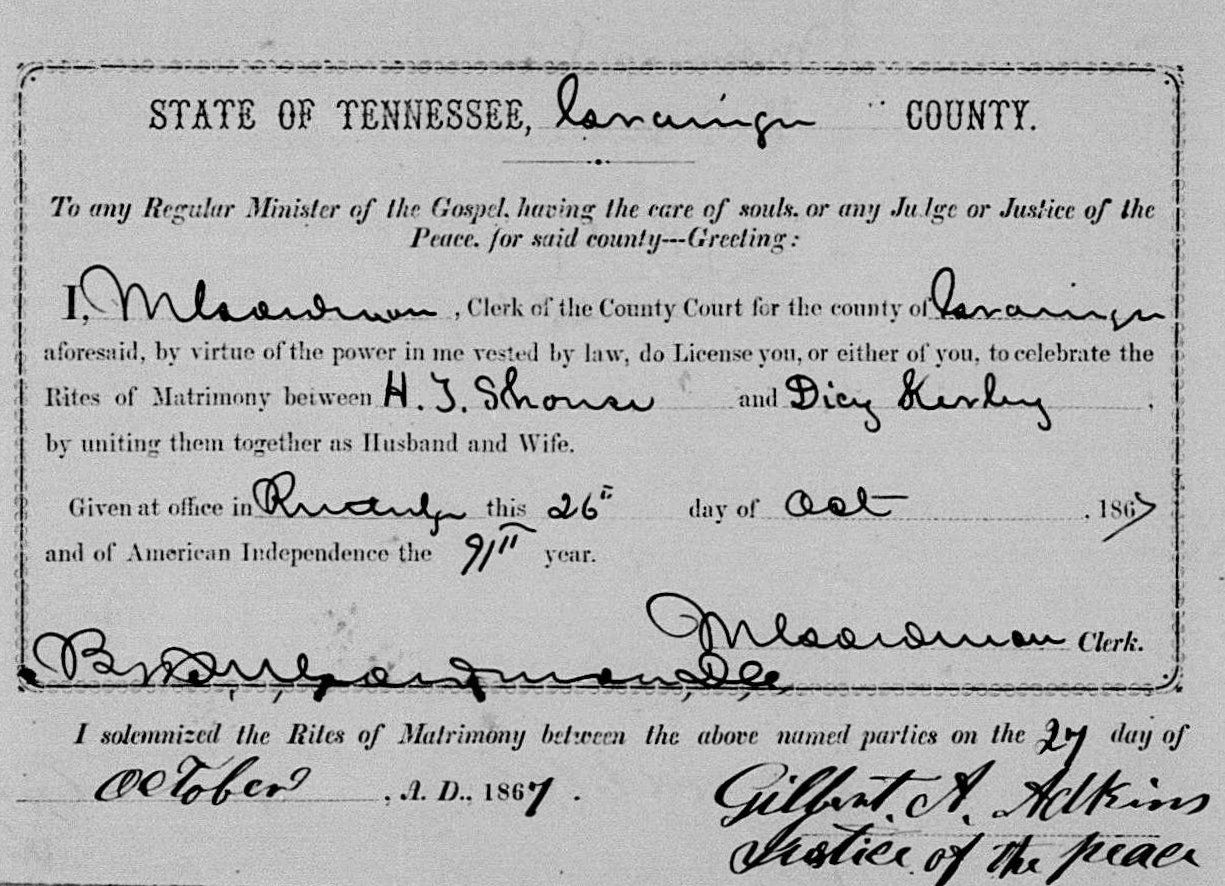 STATE OF TENNESSEE, Grainger COUNTY.
To any Regular Minister of the Gospel, having the care of souls, or any Judge or Justice of the
Peace, for said county---Greeting:
I, M Goodman, Clerk of the County Court for the county of Grainger
aforesaid, by virtue of the power in me vested by law, do License you, or either of you, to celebrate the
Rites of Matrimony between H. T. Shouse and Dicy Kerley,
by uniting them together as Husband and Wife.
Given at office in Rutledge this 26" day of Oct. 1867
and of American Independence the 91" year.
M Goodman Clerk.
By Goodman, D.C.
I solemnized the Rites of Matrimony between the above named parties on the 27 day of
October, A. D., 1867.
Gilbert. A. Adkins
Justice of the peace